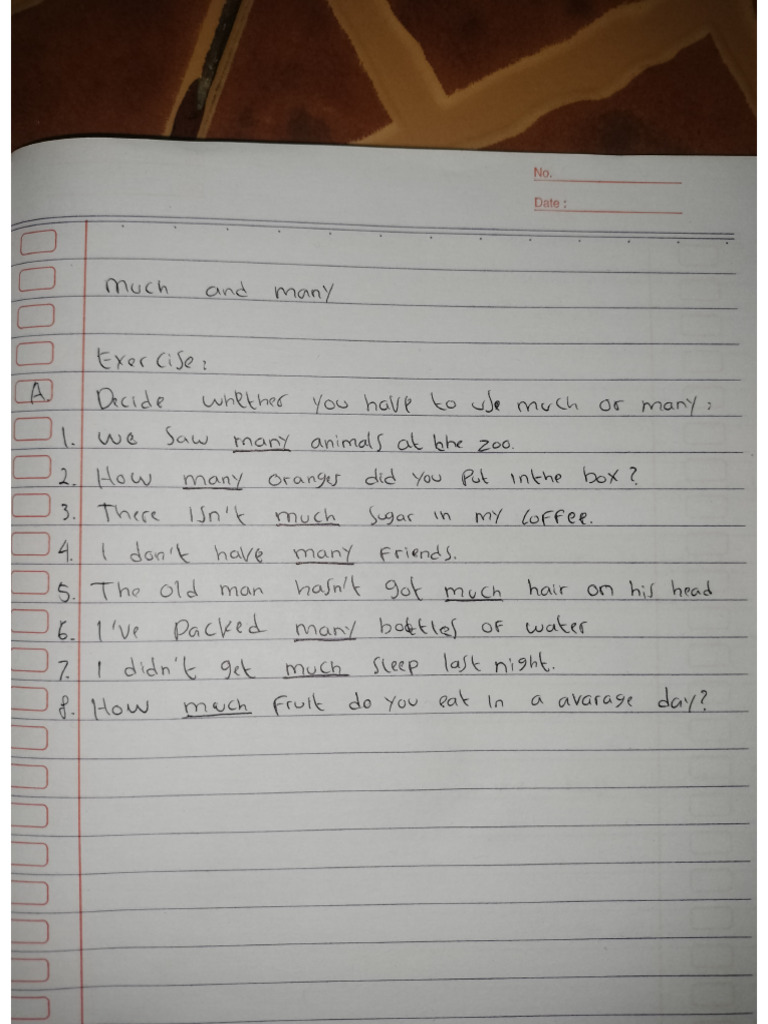 No.
Date :
much and many
Exercise:
A Decide whether you have to use much or many:
1. we saw many animals at the zoo.
2. How many oranges did you put inthe box?
3. There isn't much sugar in my coffee.
4. I don't have many friends.
5. The old man hasn't got much hair on his head
6. I've packed many bottles of water
7. I didn't get much sleep last night.
8. How much fruit do you eat in a avarage day?